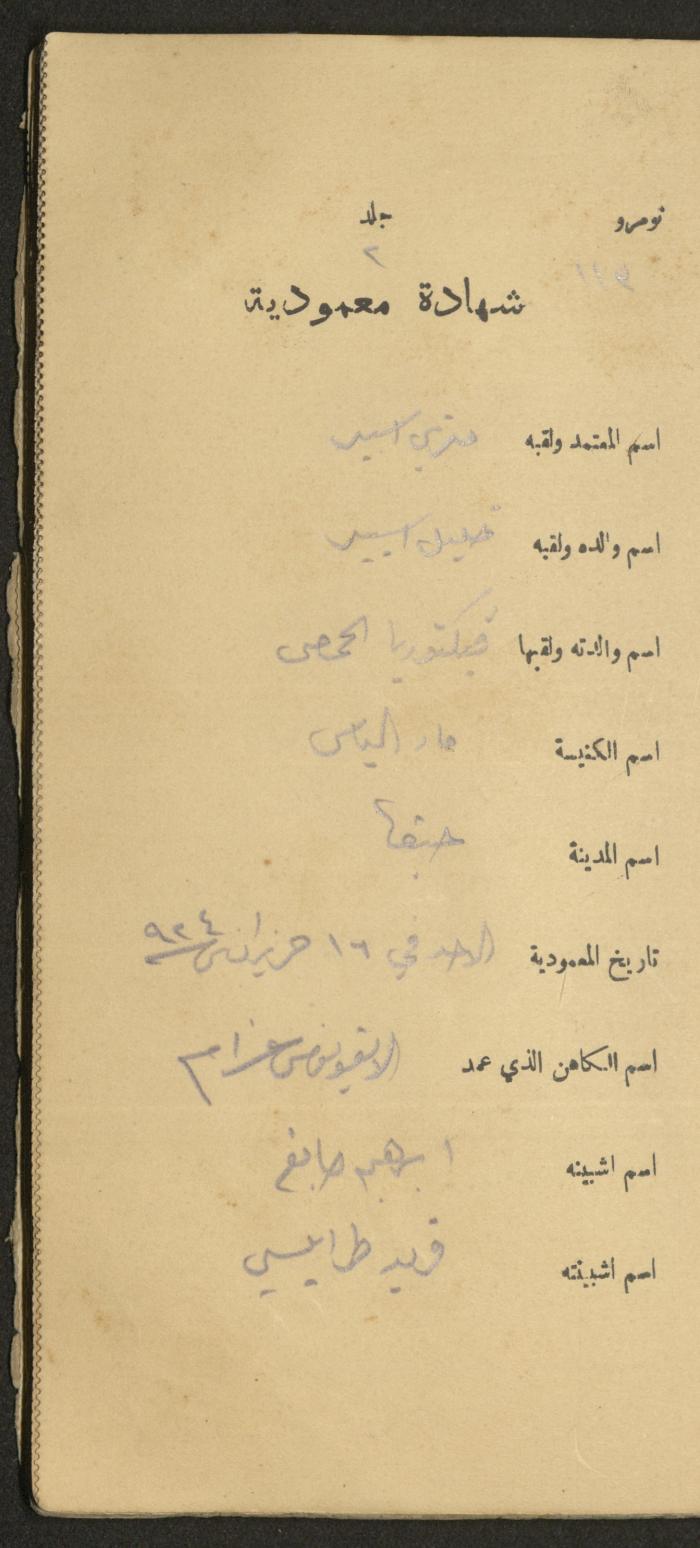 نومرو جلد
١١٩ ٢
شهادة معمودية
اسم المعتمد ولقبه هنري اسبير
اسم والده ولقبه خليل اسبير
اسم والدته ولقبها فيكتوريا الحمصي
اسم الكنيسة مار الياس
اسم المدينة حيفا
تاريخ المعمودية الاحد في ١٦ حزيران سنة ٩٢٤
اسم الكاهن الذي عمد عزام
اسم اشبينه ابرهيم صايغ
اسم اشبينته فريد طرابلسي